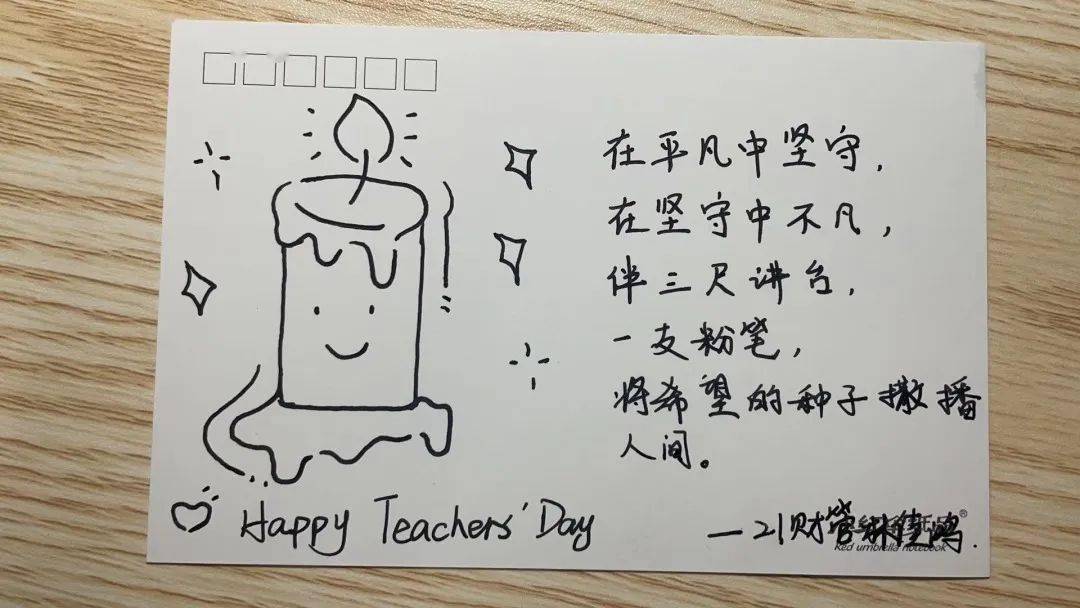 在平凡中坚守，
在坚守中不凡，
伴三尺讲台，
一支粉笔，
将希望的种子撒播
人间。
Happy Teachers' Day
—21财管林佳鸣
Red umbrella notebook